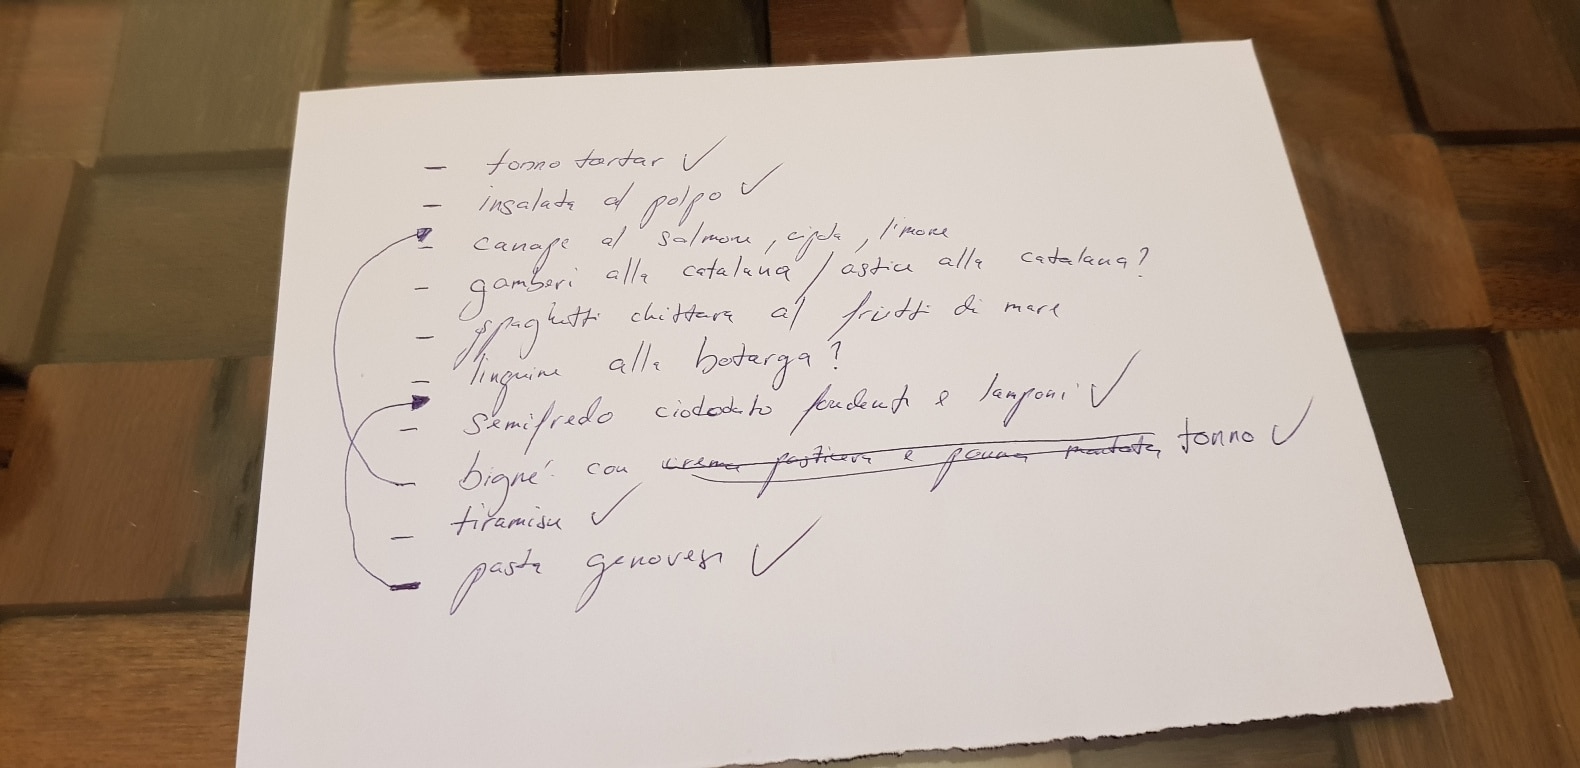 - tonno tartar ✓
- insalata al polpo ✓
- canape al salmone, , limone
- gamberi alla catalana / astice alla catalana?
- spaghetti chittara al frutti di mare
- linguine alla botarga?
- semifredo ciocolato fondente e lamponi ✓
- bigné con crema pasticera e panna montata tonno ✓
- tiramisu ✓
- pasta genovese ✓